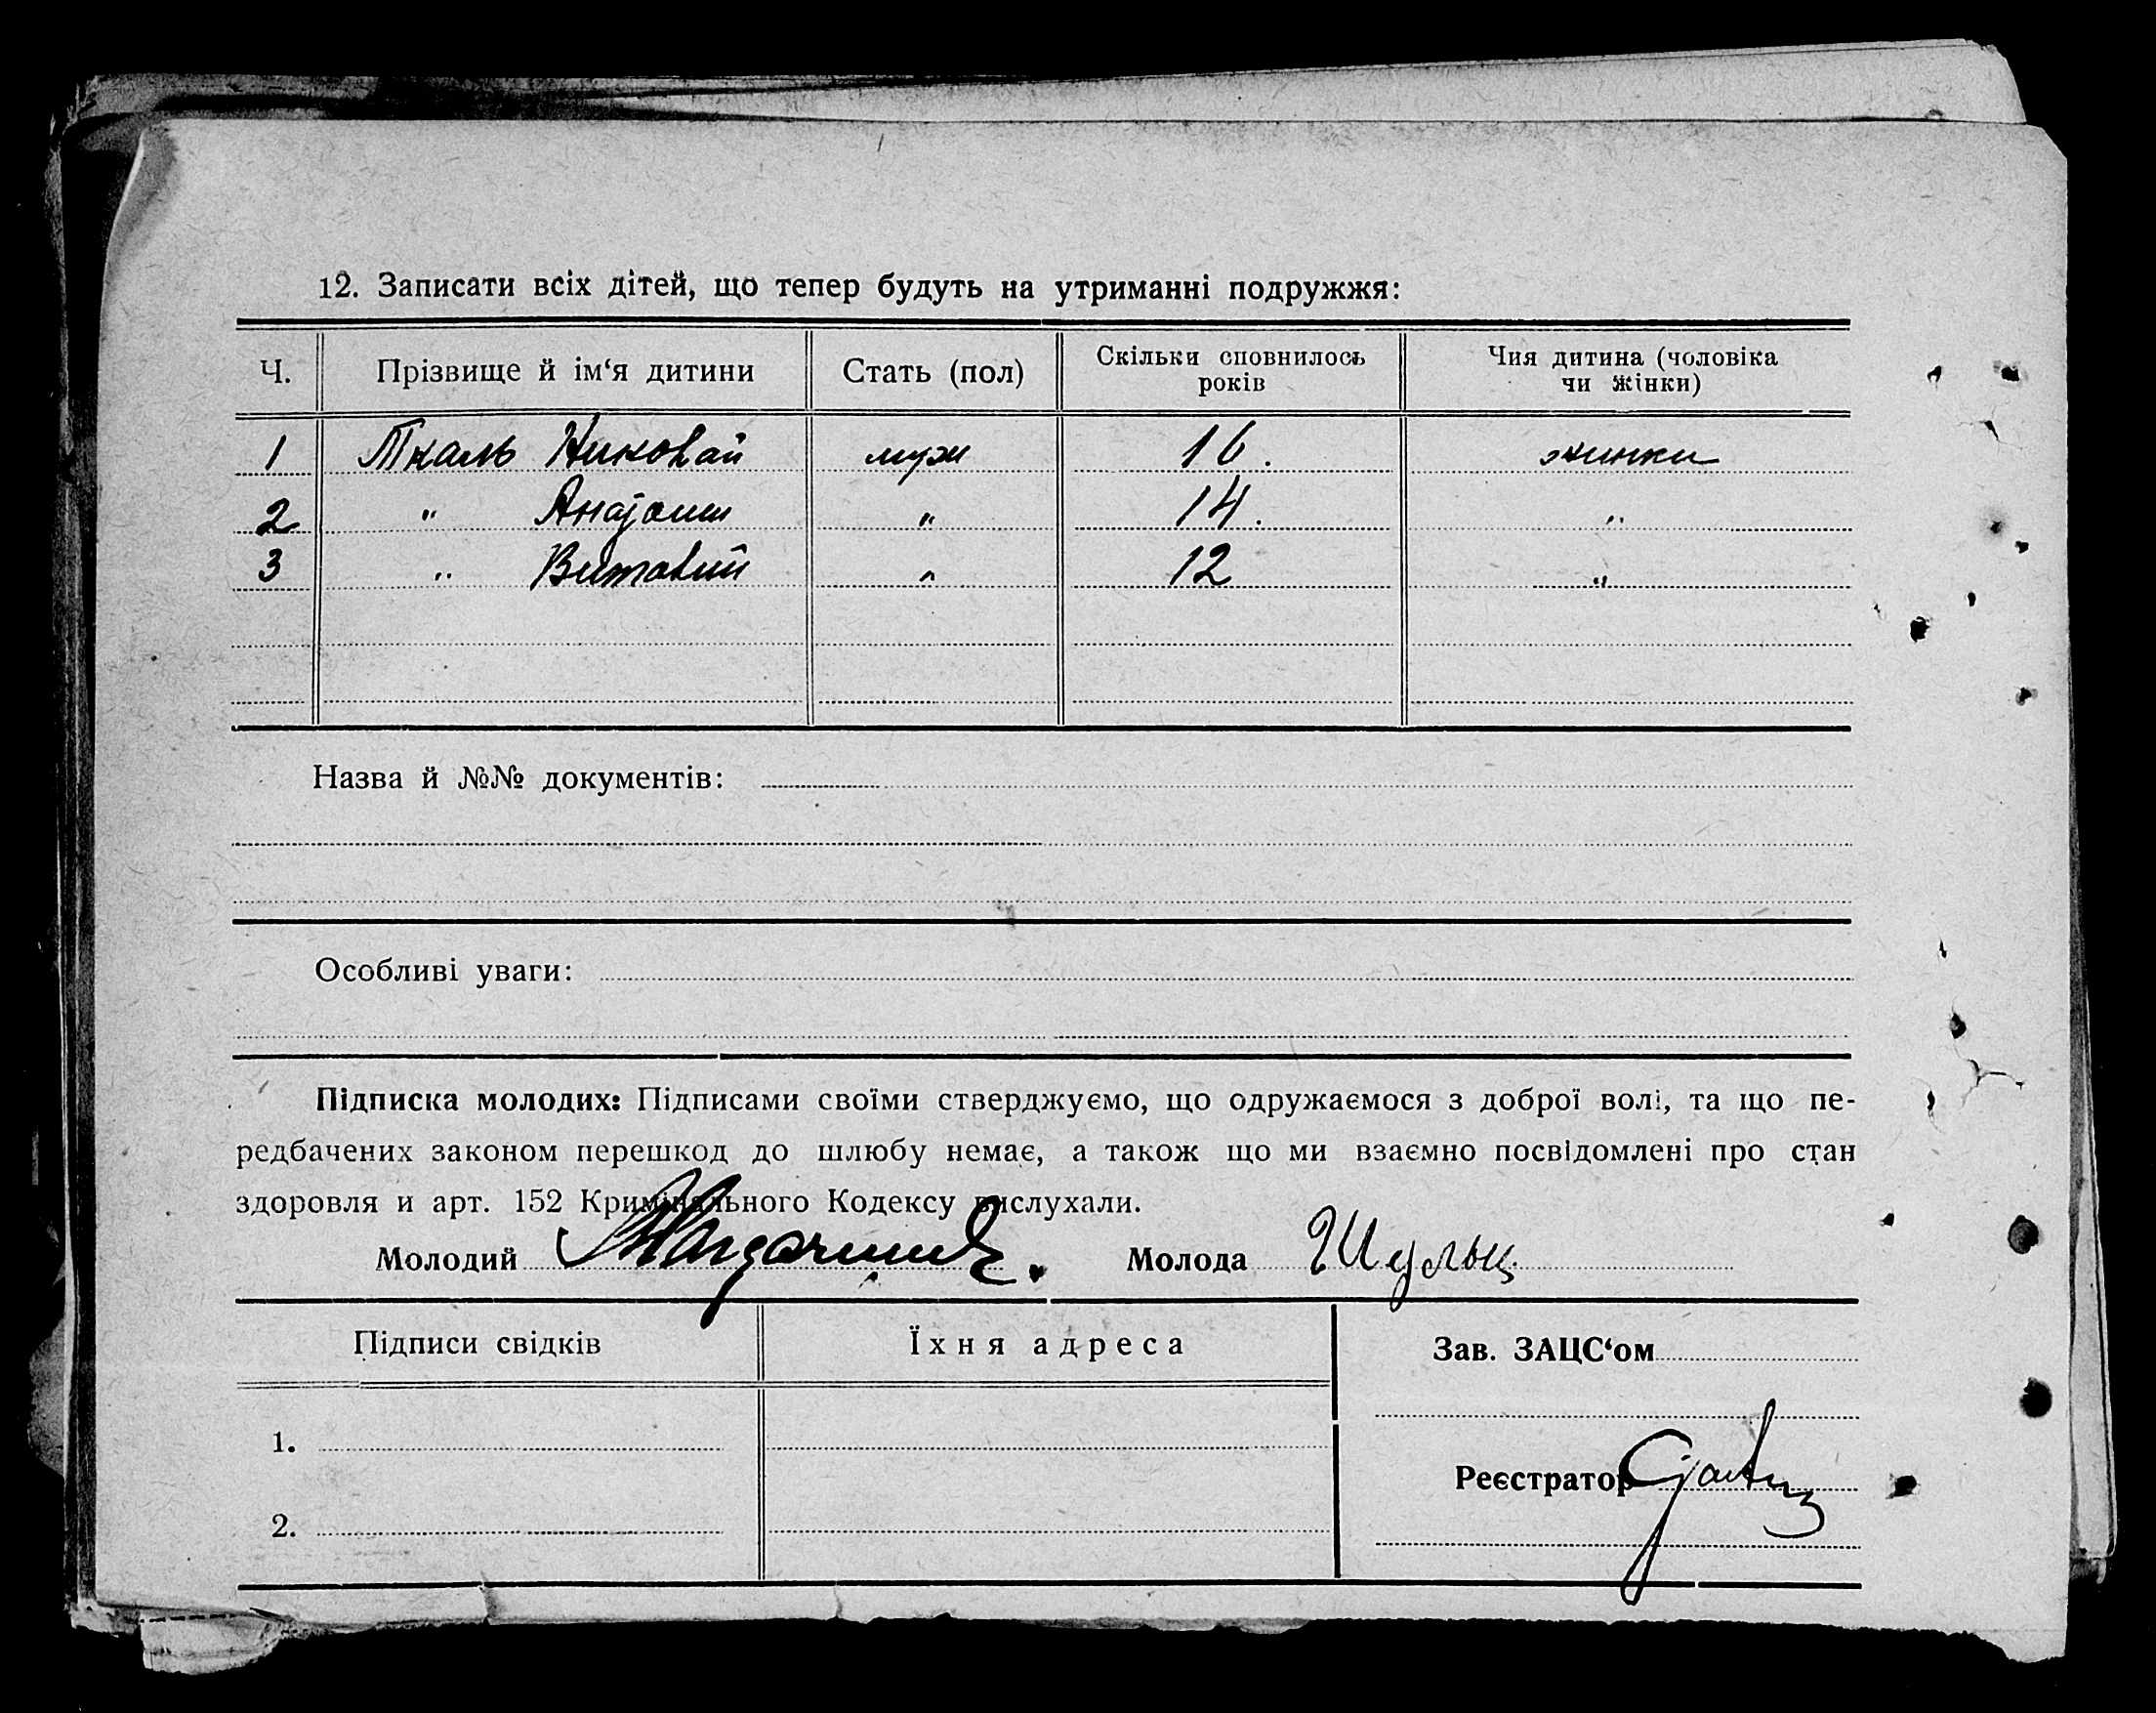 12. Записати всіх дітей, що тепер будуть на утриманні подружжя:
Ч. Прізвище й ім‘я дитини Стать (пол) Скільки сповнилось років Чия дитина (чоловіка чи жінки)
1 Ткаль Николай муж 16. жинки
2 " Анатолий " 14. "
3 " Виталий " 12 "
Назва й №№ документів:
Особливі уваги:
Підписка молодих: Підписами своїми стверджуємо, що одружаємося з доброї волі, та що пе-
редбачених законом перешкод до шлюбу немає, а також що ми взаємно посвідомлені про стан
здоровля и арт. 152 Кримінального Кодексу вислухали.
Молодий Молода Шульц
Підписи свідків Їхня адреса Зав. ЗАЦС‘ом
1.
Реєстратор
2.